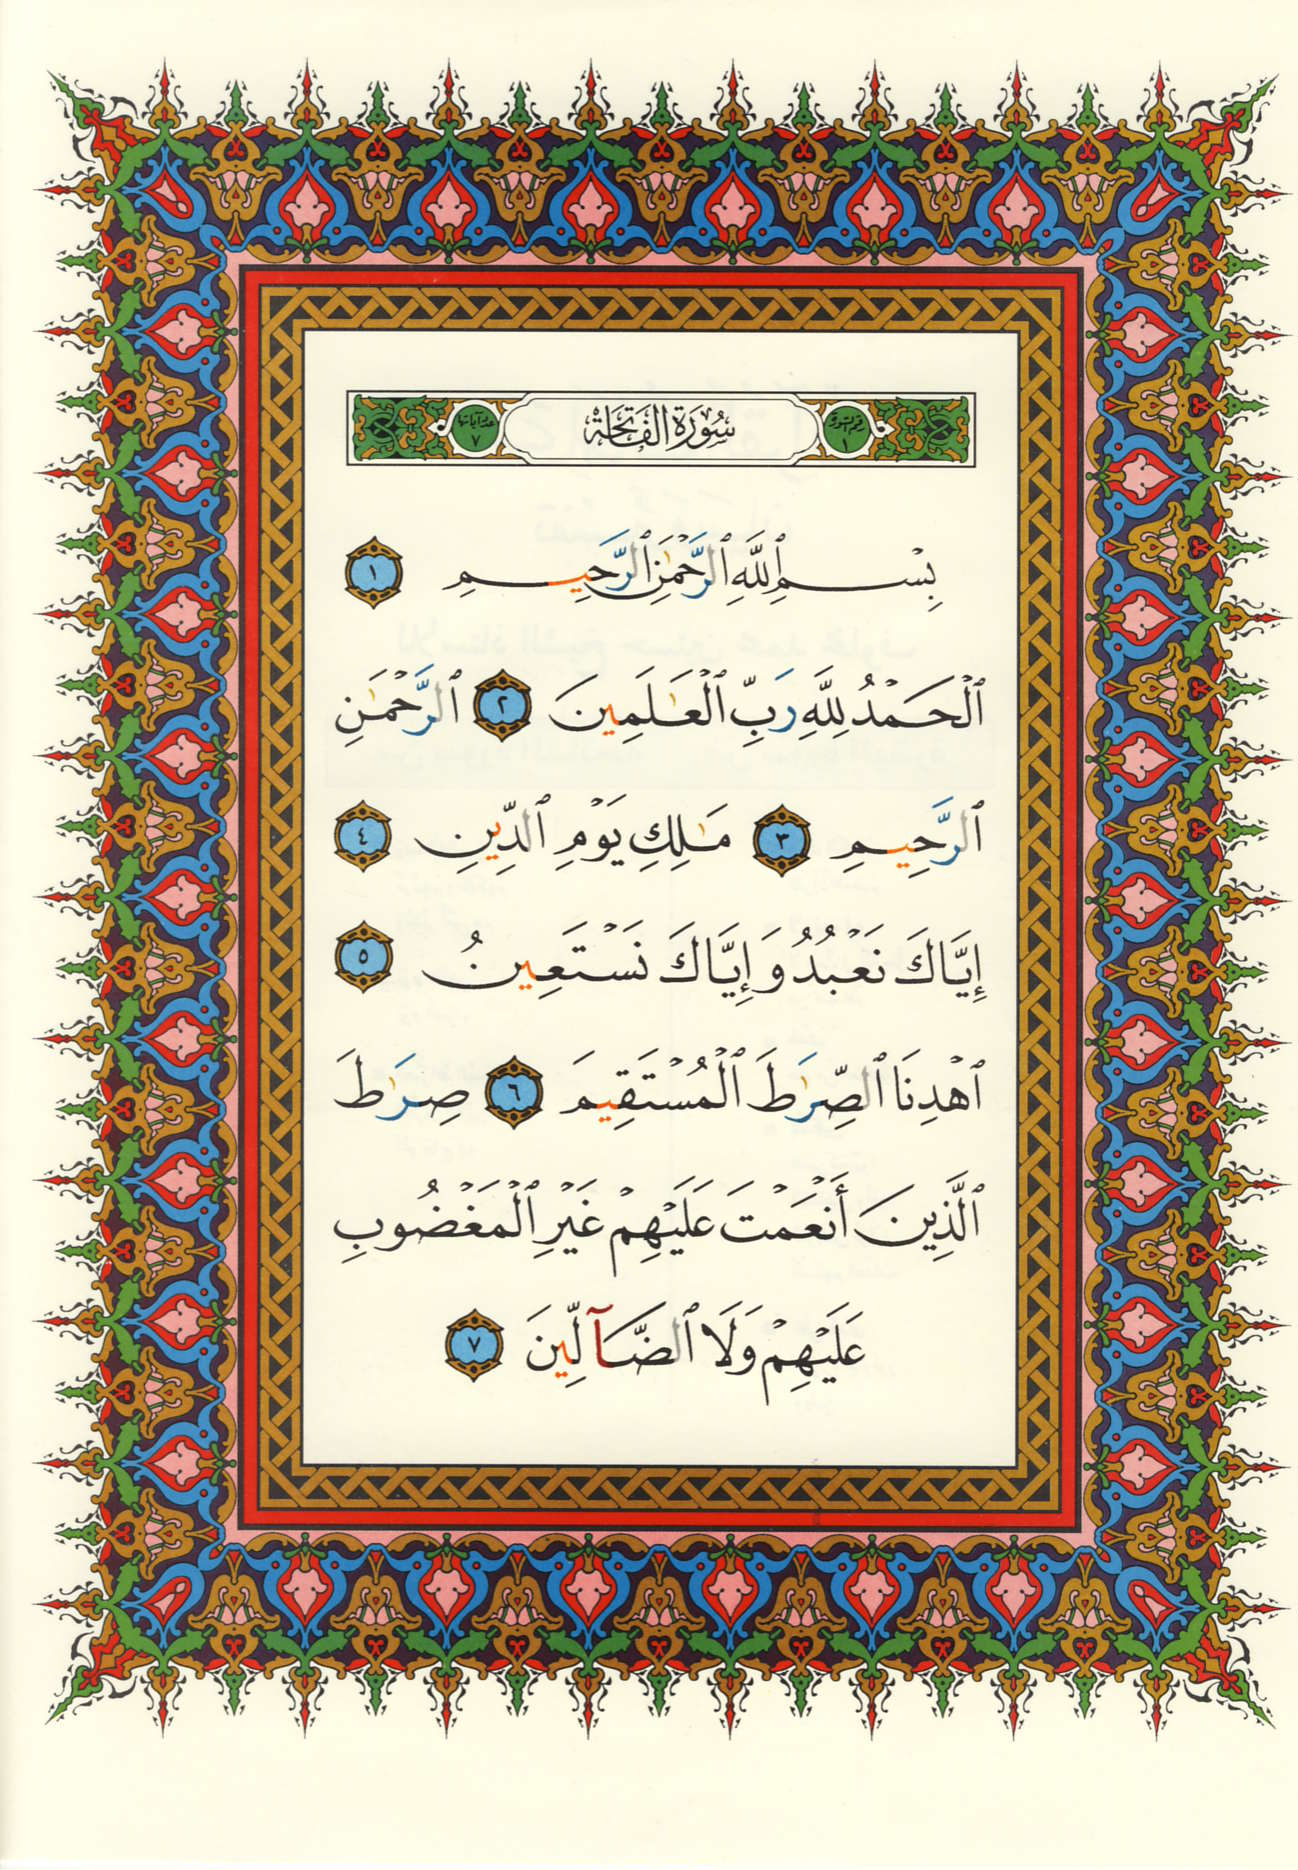 رقم سورة ١ سُورَةُ الْفَاتِحَةِ عدد آياتها ٧
بِسْمِ ٱللَّهِ ٱلرَّحْمَٰنِ ٱلرَّحِيمِ ١
ٱلْحَمْدُ لِلَّهِ رَبِّ ٱلْعَٰلَمِينَ ٢ ٱلرَّحْمَٰنِ
ٱلرَّحِيمِ ٣ مَٰلِكِ يَوْمِ ٱلدِّينِ ٤
إِيَّاكَ نَعْبُدُ وَإِيَّاكَ نَسْتَعِينُ ٥
ٱهْدِنَا ٱلصِّرَٰطَ ٱلْمُسْتَقِيمَ ٦ صِرَٰطَ
ٱلَّذِينَ أَنْعَمْتَ عَلَيْهِمْ غَيْرِ ٱلْمَغْضُوبِ
عَلَيْهِمْ وَلَا ٱلضَّآلِّينَ ٧